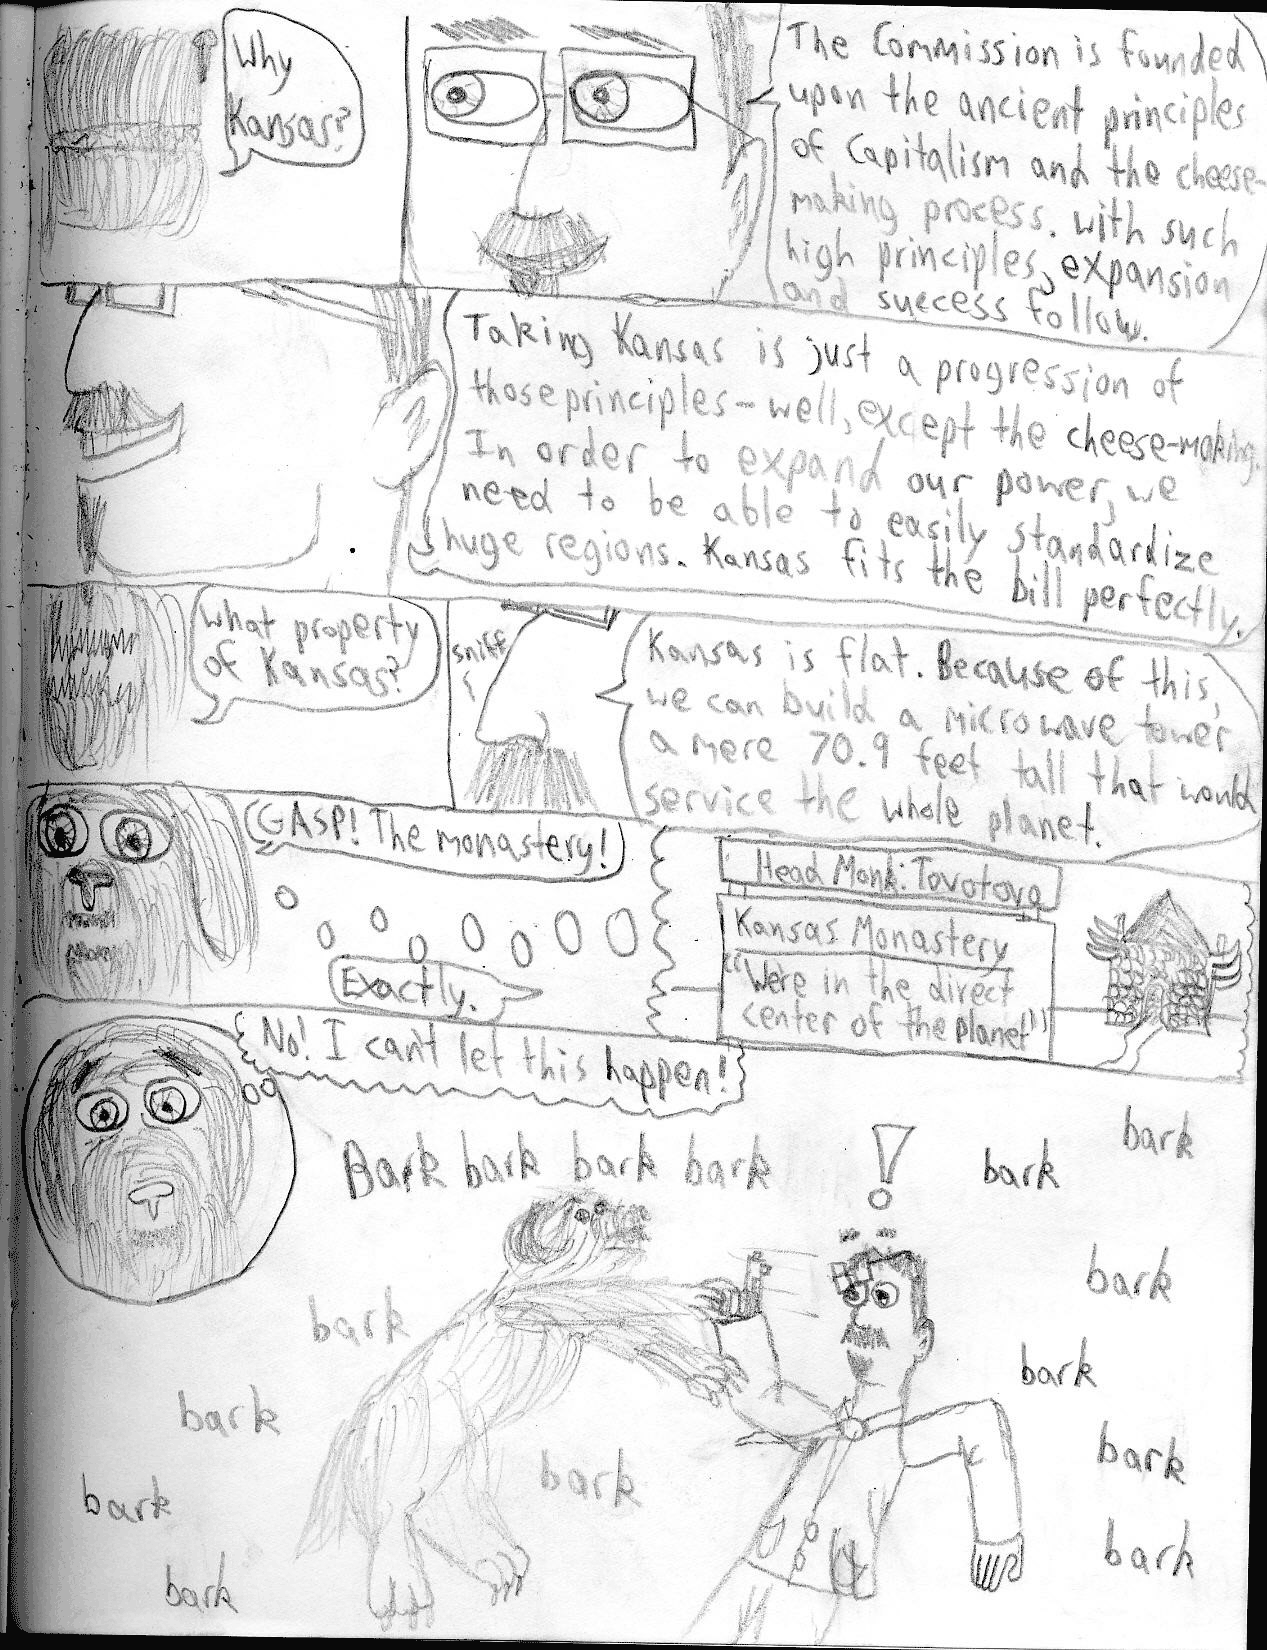 Why
Kansas?
The Commission is founded
upon the ancient principles
of Capitalism and the cheese-
making process. With such
high principles, expansion
and success follow.
Taking Kansas is just a progression of
those principles - well, except the cheese-making.
In order to expand our power, we
need to be able to easily standardize
huge regions. Kansas fits the bill perfectly.
What property
of Kansas?
sniff
Kansas is flat. Because of this,
we can build a microwave tower
a mere 70.9 feet tall that would
service the whole planet.
GASP! The monastery!
Exactly.
Head Monk: Tovotova
Kansas Monastery
"Were in the direct
center of the planet"
No! I can't let this happen!
Bark bark bark bark
!
bark
bark
bark
bark
bark
bark
bark
bark
bark
bark
bark